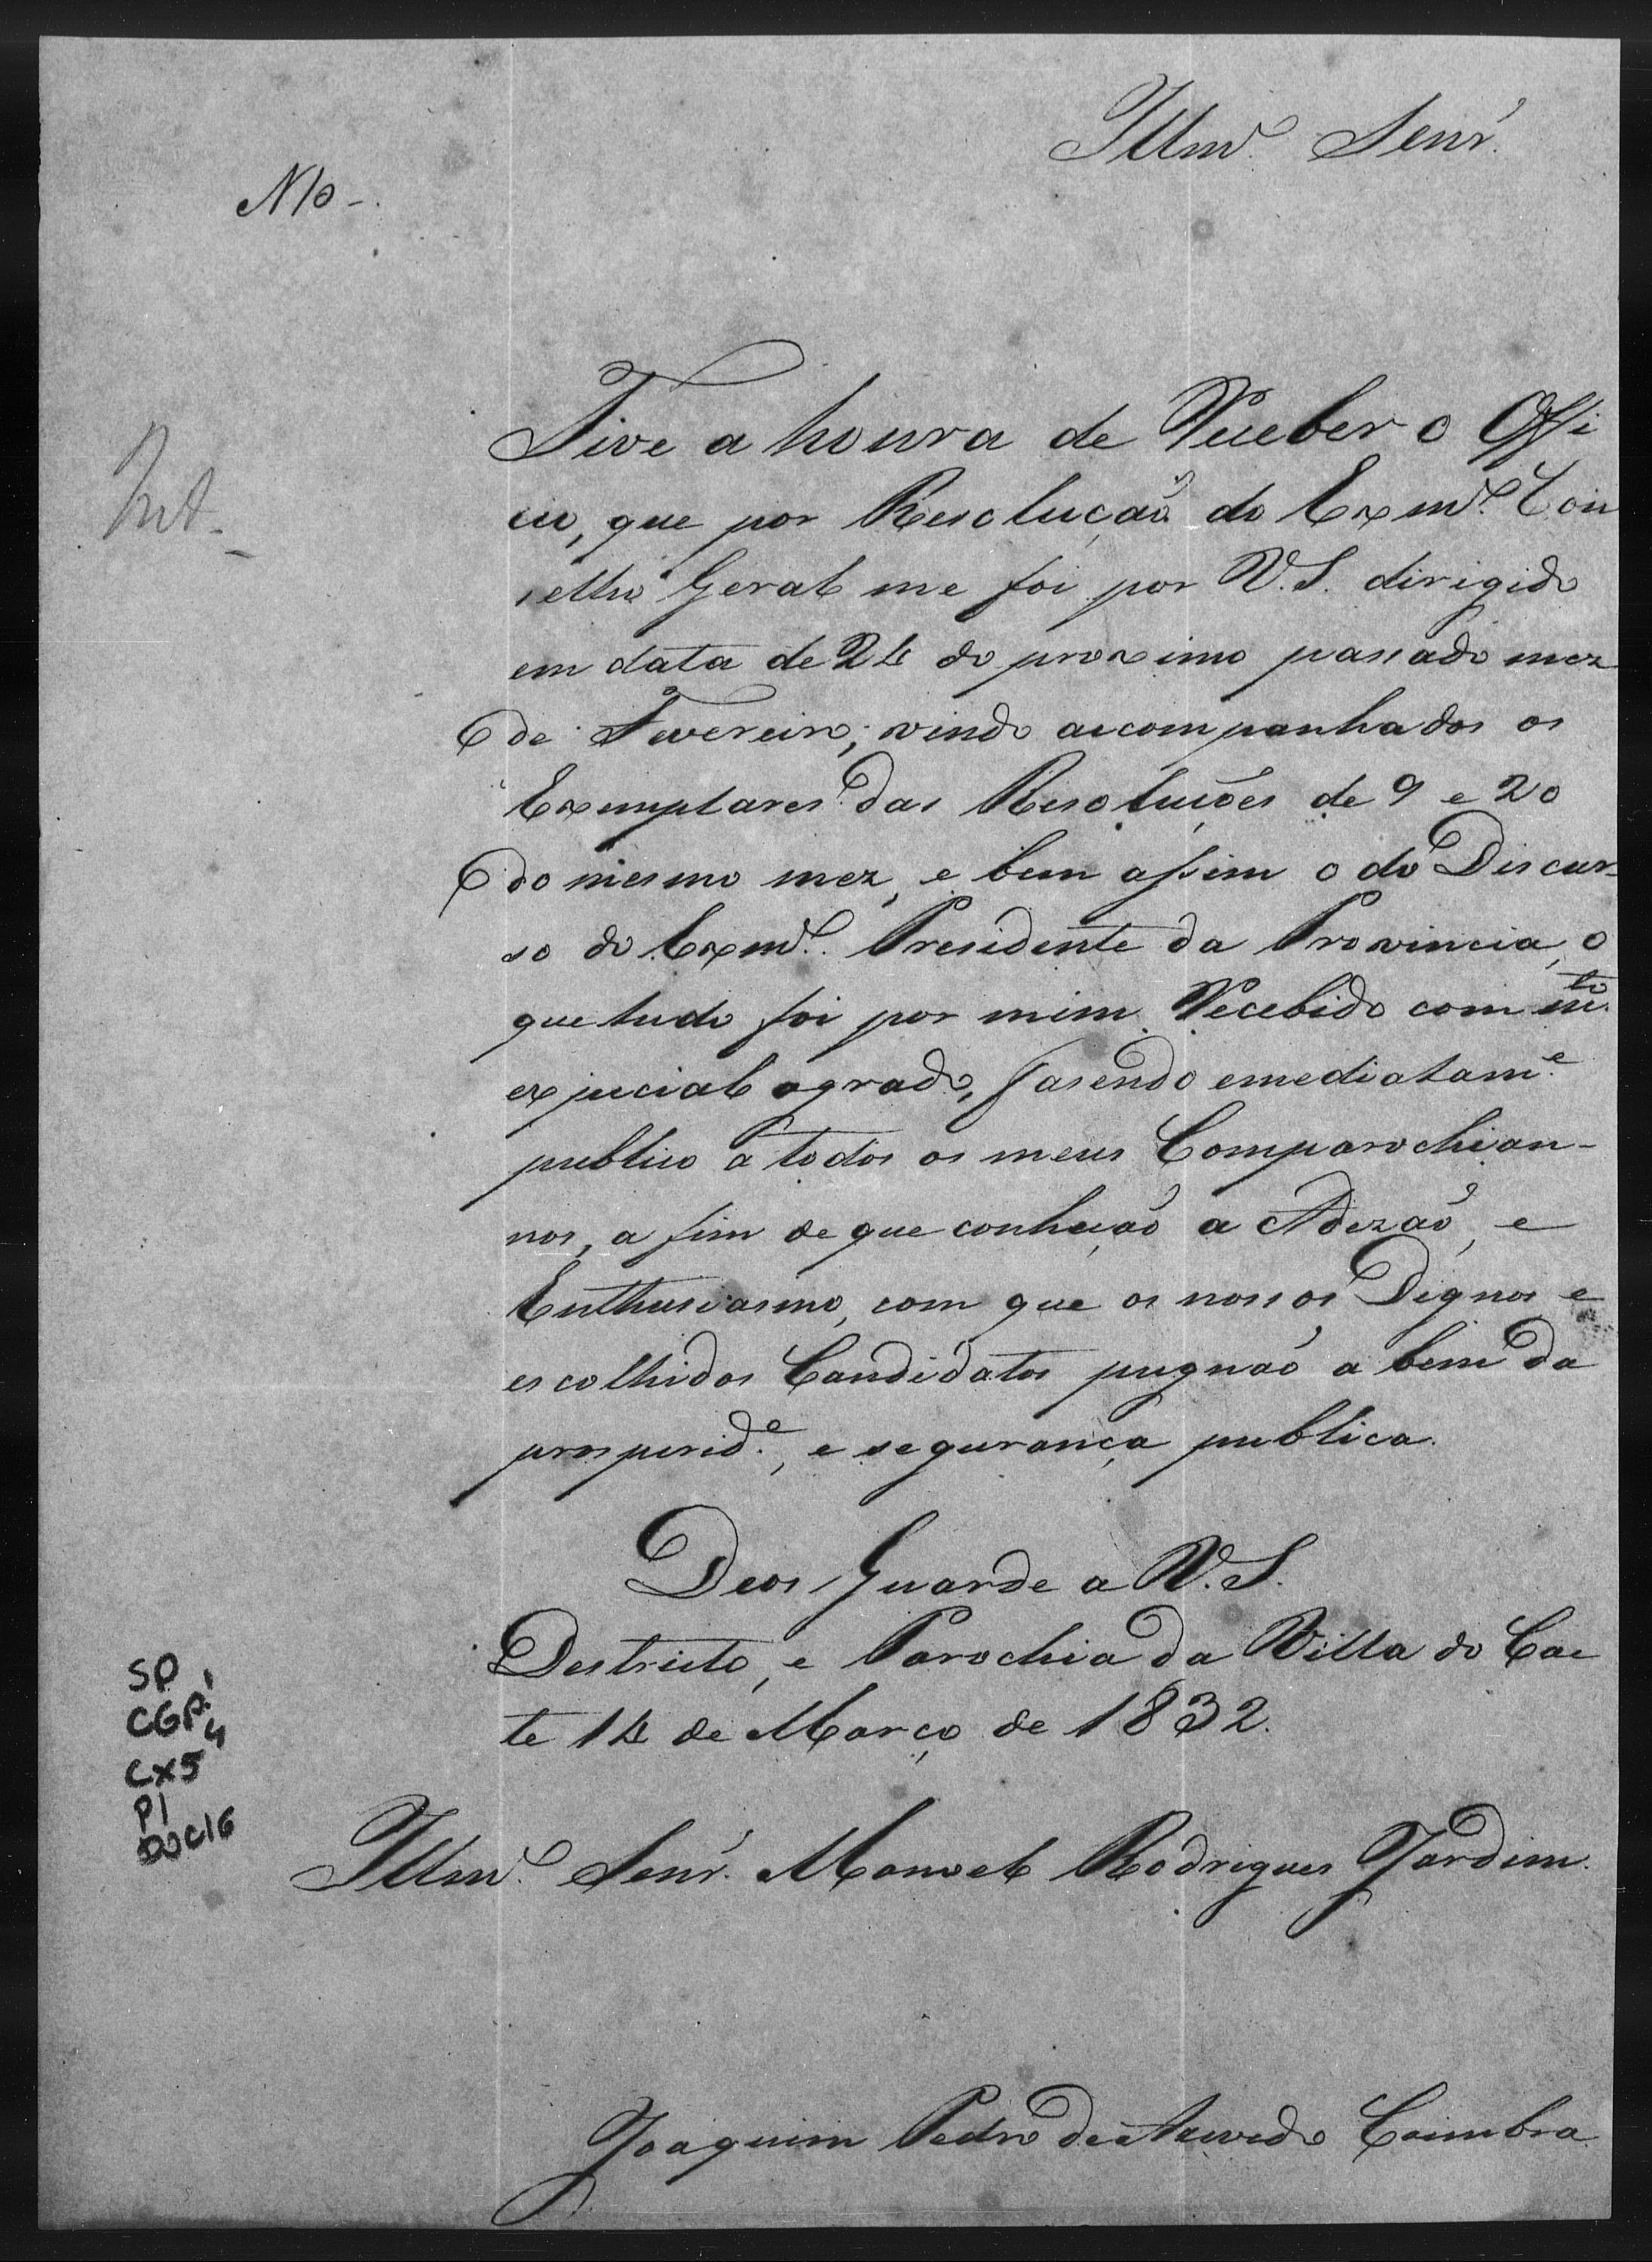 Illmº. Senr.
N10-
Int-
Tive a honra de Receber o Offi
cio, que por Resolução do Exmº. Con
selho Geral me foi por V.S. dirigido
em data de 24 do proximo passado mez
de Fevereiro, vindo acompanhados os
Exemplares das Resoluções de 9 e 20
do mesmo mez, e bem assim o do Discur-
so do Exmº. Presidente da Provincia, o
que tudo foi por mim Recebido com mto.
especial agrado, fasendo emediatame.
publico a todos os meus Comparochian-
nos, a fim de que conheção a Adezaõ, e
Enthusiasmo, com que os nossos Dignos e
escolhidos Candidatos pugnaõ a bem da
prosperide., e segurança publica.
Deos Guarde a V.S.
Destricto, e Parochia da Villa do Cae
te 14 de Março de 1832.
SP
CGP 1,4
CX5
P1
DOC16
Illmº. Senr. Manoel Rodrigues Jardim.
Joaquim Pedro de Azevedo Coimbra